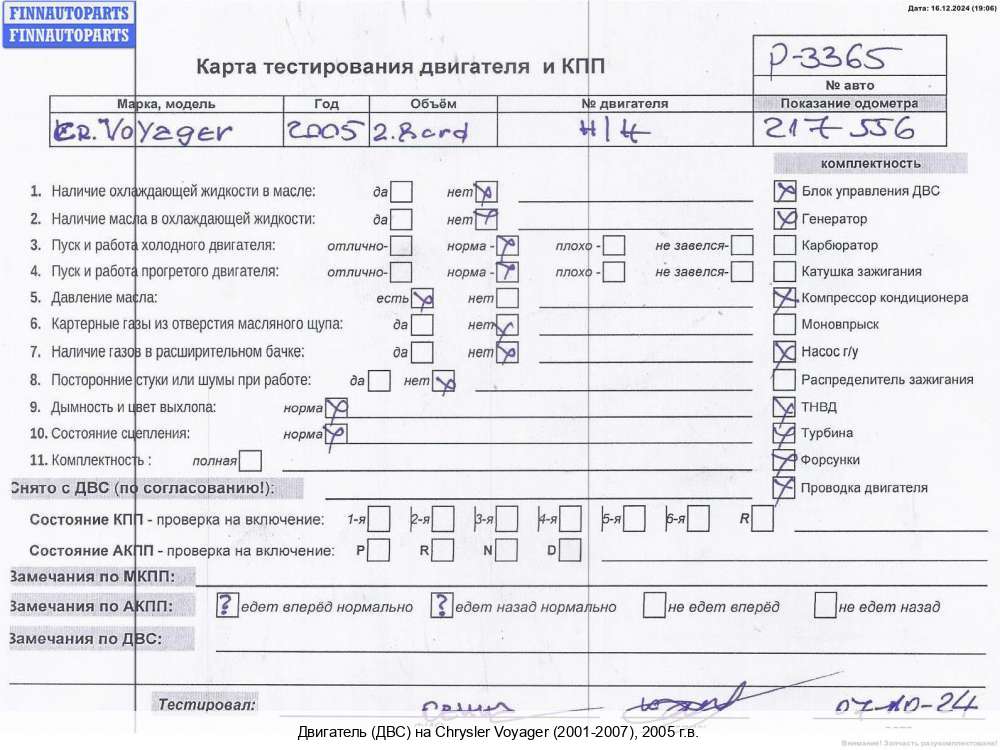 FINNAUTOPARTS
FINNAUTOPARTS
Дата: 16.12.2024 (19:06)
Карта тестирования двигателя и КПП
P-3365
№ авто
Марка, модель Год Объём № двигателя Показание одометра
CR. Voyager 2005 2.8 crd Н/Н 217 556
комплектность
1. Наличие охлаждающей жидкости в масле: да нет Блок управления ДВС
2. Наличие масла в охлаждающей жидкости: да нет Генератор
3. Пуск и работа холодного двигателя: отлично- норма - плохо - не завелся- Карбюратор
4. Пуск и работа прогретого двигателя: отлично- норма - плохо - не завелся- Катушка зажигания
5. Давление масла: есть нет Компрессор кондиционера
6. Картерные газы из отверстия масляного щупа: да нет Моновпрыск
7. Наличие газов в расширительном бачке: да нет Насос г/у
8. Посторонние стуки или шумы при работе: да нет Распределитель зажигания
9. Дымность и цвет выхлопа: норма ТНВД
10. Состояние сцепления: норма Турбина
11. Комплектность : полная Форсунки
Снято с ДВС (по согласованию!): Проводка двигателя
Состояние КПП - проверка на включение: 1-я 2-я 3-я 4-я 5-я 6-я R
Состояние АКПП - проверка на включение: P R N D
Замечания по МКПП:
Замечания по АКПП: ? едет вперёд нормально ? едет назад нормально не едет вперёд не едет назад
Замечания по ДВС:
Тестировал: 07-10-24
Двигатель (ДВС) на Chrysler Voyager (2001-2007), 2005 г.в.
Внимание! Запчасть разукомплектована!